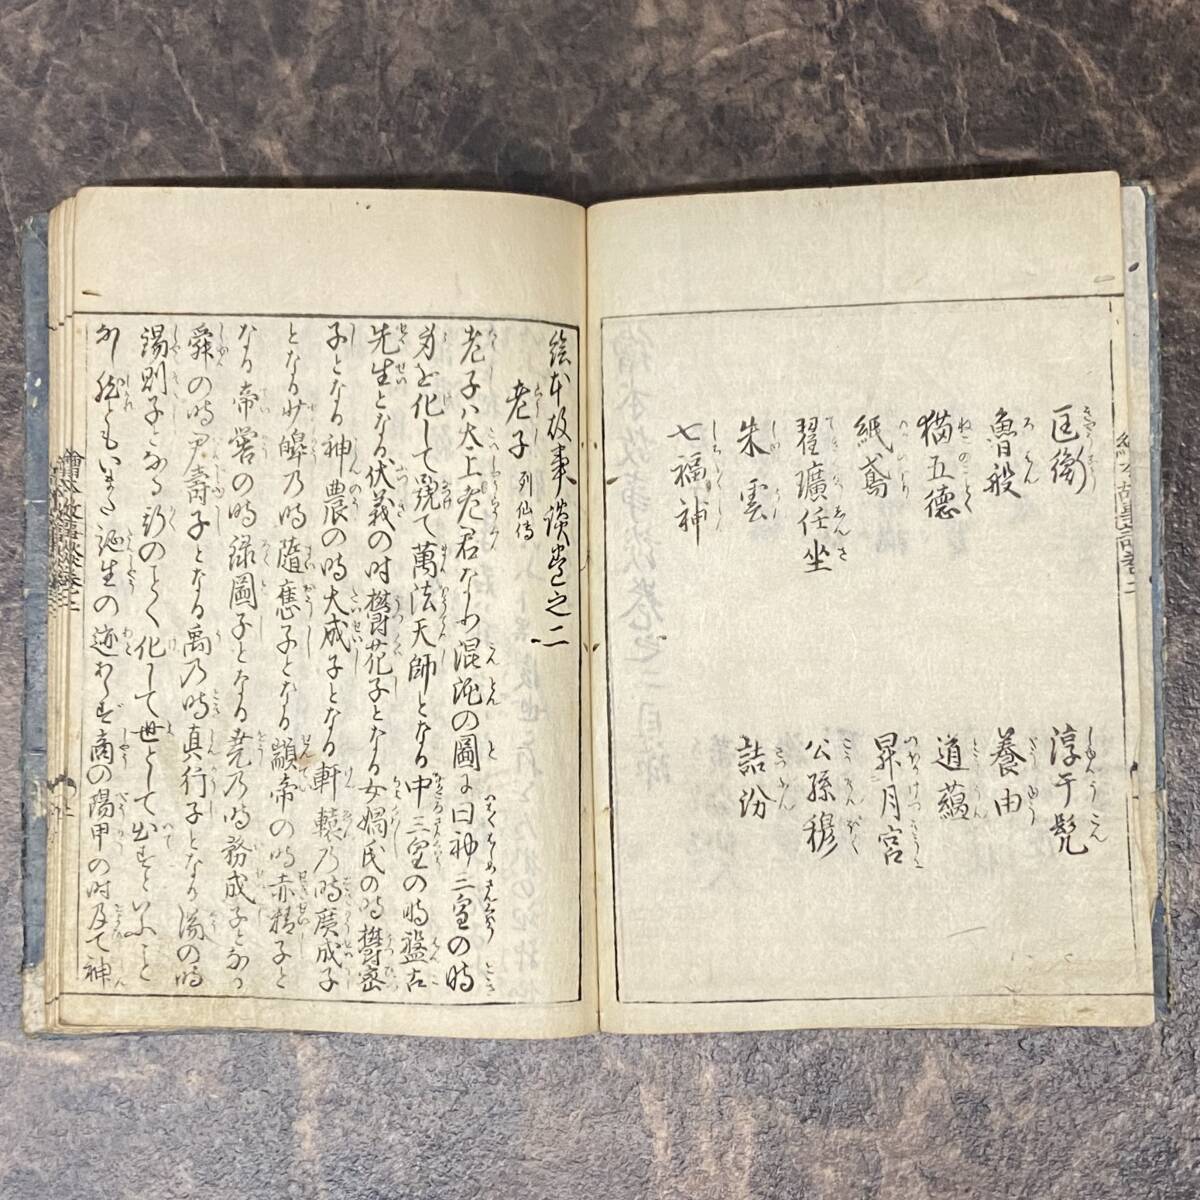 匡衡
魯般
猫五徳
紙鳶
翟璜任坐
朱雲
七福神
淳于髠
養由
道蘊
昇月宮
公孫穆
詰汾
絵本故事談巻之二
老子 列仙傳
老子ハ太上老君なり混沌の圖に曰神三皇の時
身を化して號て萬法天師となる中三皇の時盤古
先生となる伏羲の时欝花子となる女媧氏の時欝密
子となる神農の時大成子となる軒轅乃時廣成子
となる少皡乃時隨應子となる顓帝の時赤精子と
なる帝嚳の時録圖子となる尭乃時務成子となる
舜の時尹壽子となる禹乃時真行子となり湯の時
錫則子となる
化して世として出
誕生の迹
商の陽甲の时及て神